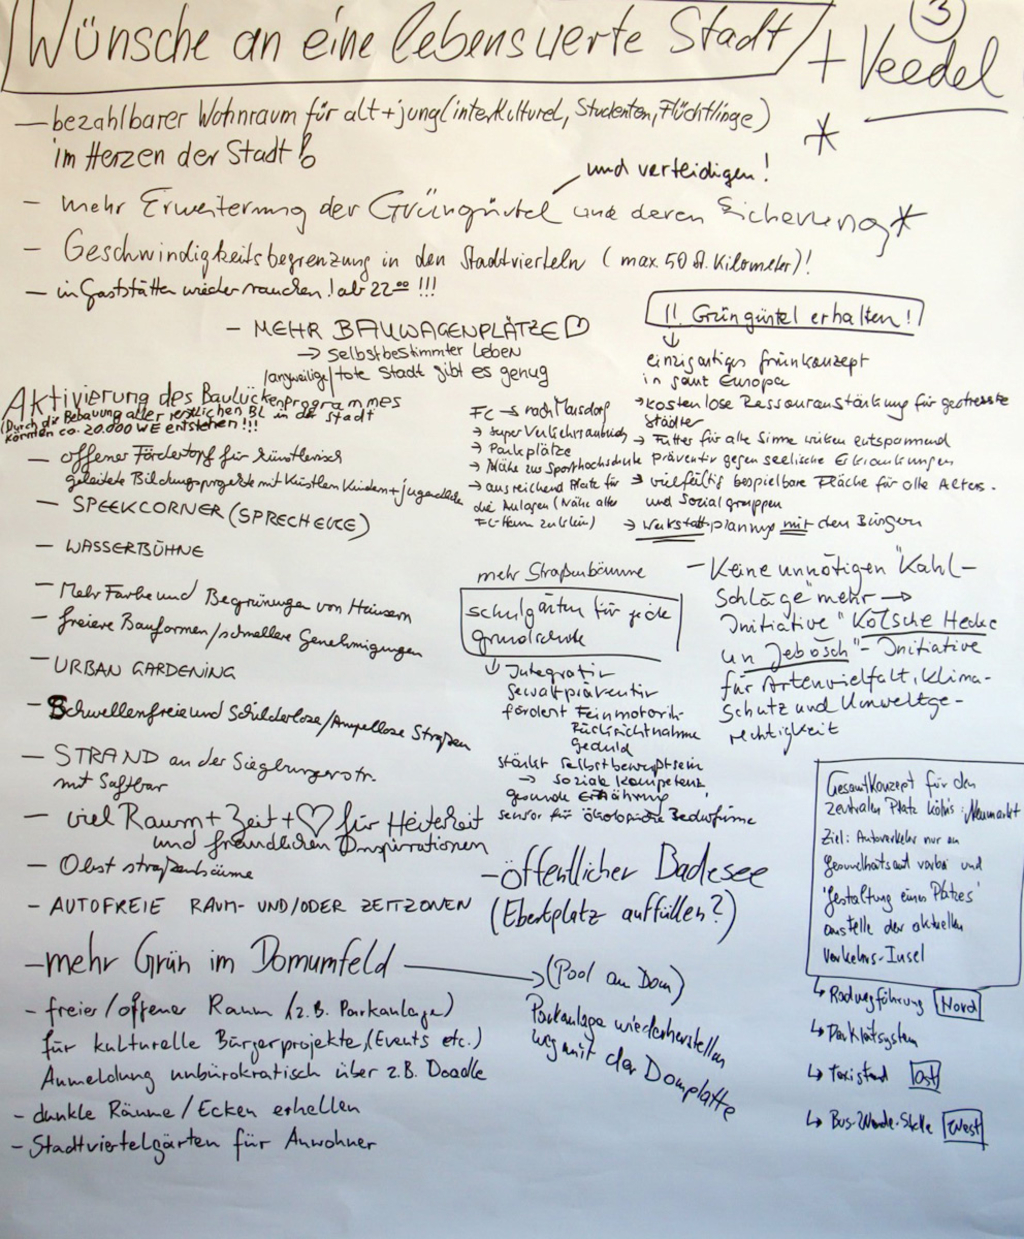 3
Wünsche an eine lebenswerte Stadt + Veedel
- bezahlbarer Wohnraum für alt + jung (interkulturel, Studenten, Flüchtlinge)
im Herzen der Stadt!
*
und verteidigen!
- mehr Erweiterung der Grüngürtel und deren Sicherung *
- Geschwindigkeitsbegrenzung in den Stadtvierteln (max. 50 St. Kilometer)!
- in Gaststätten wieder rauchen! ab 22⁰⁰ !!!
- MEHR BAUWAGENPLÄTZE ♡
→ selbstbestimmter Leben
langweilige/tote Stadt gibt es genug
Aktivierung des Baulückenprogrammes
(Durch die Bebauung aller restlichen BL in der Stadt
könnten ca. 20.000 WE entstehen!!!
- offener Fördertopf für künstlerisch
geleitete Bildungsprojekte mit Künstlern Kindern + jugendliche
- SPEEKCORNER (SPRECHECKE)
- WASSERBÜHNE
- Mehr Farbe und Begrünungen von Häusern
- freiere Bauformen / schnellere Genehmigungen
- URBAN GARDENING
- Schwellenfreie und Schilderlose / Ampellose Straßen
- STRAND an der Siegburgerstr.
mit Saftbar
- viel Raum + Zeit + ♡ für Heiterkeit
und freundlichen Inspirationen
- Obst straßenbäume
- AUTOFREIE RAUM- UND/ODER ZEITZONEN
- mehr Grün im Domumfeld → (Pool am Dom)
Parkanlage wiederherstellen
weg mit der Domplatte
- freier / offener Raum (z.B. Parkanlage)
für kulturelle Bürgerprojekte, (Events etc.)
Anmeldung unbürokratisch über z.B. Doodle
- dunkle Räume / Ecken erhellen
- Stadtviertelgärten für Anwohner
!! Grüngürtel erhalten!
↓
einzigartiges Grünkonzept
in samt Europa
→ kostenlose Ressourcenstärkung für gestresste
Städter
→ Futter für alle Sinne wirken entspannend
präventiv gegen seelische Erkrankungen
→ vielfältig bespielbare Fläche für alle Alters-
und Sozialgruppen
→ Werkstattplanung mit den Bürgern
FC → nach Marsdorf
→ super Verkehrsanbindg
→ Parkplätze
→ Nähe zur Sporthochschule
→ ausreichend Platz für
die Anlagen (Nähe altes
FC-Heim zu klein)
mehr Straßenbäume
schulgärten für jede
grundschule
↓ Integrativ
Gewaltpräventiv
fördert Feinmotorik
Rücksichtnahme
Geduld
stärkt selbstbewusstsein
→ soziale kompetenz
gesunde Ernährung
sensor für ökologische Bedürfnisse
- öffentlicher Badesee
(Ebertplatz auffüllen?)
- Keine unnötigen "Kahl-
Schläge" mehr →
Initiative "Kölsche Hecke
un Jebösch" - Initiative
für Artenvielfalt, Klima-
Schutz und Umweltge-
rechtigkeit
Gesamtkonzept für den
zentralen Platz Kölns: Neumarkt
Ziel: Autoverkehr nur am
Gesundheitsamt vorbei und
'Gestaltung eines Platzes'
anstelle der aktuellen
Verkehrs-Insel
↳ Radwegführung Nord
↳ Parkleitsystem
↳ Taxistand Ost
↳ Bus-Wende-Stelle West